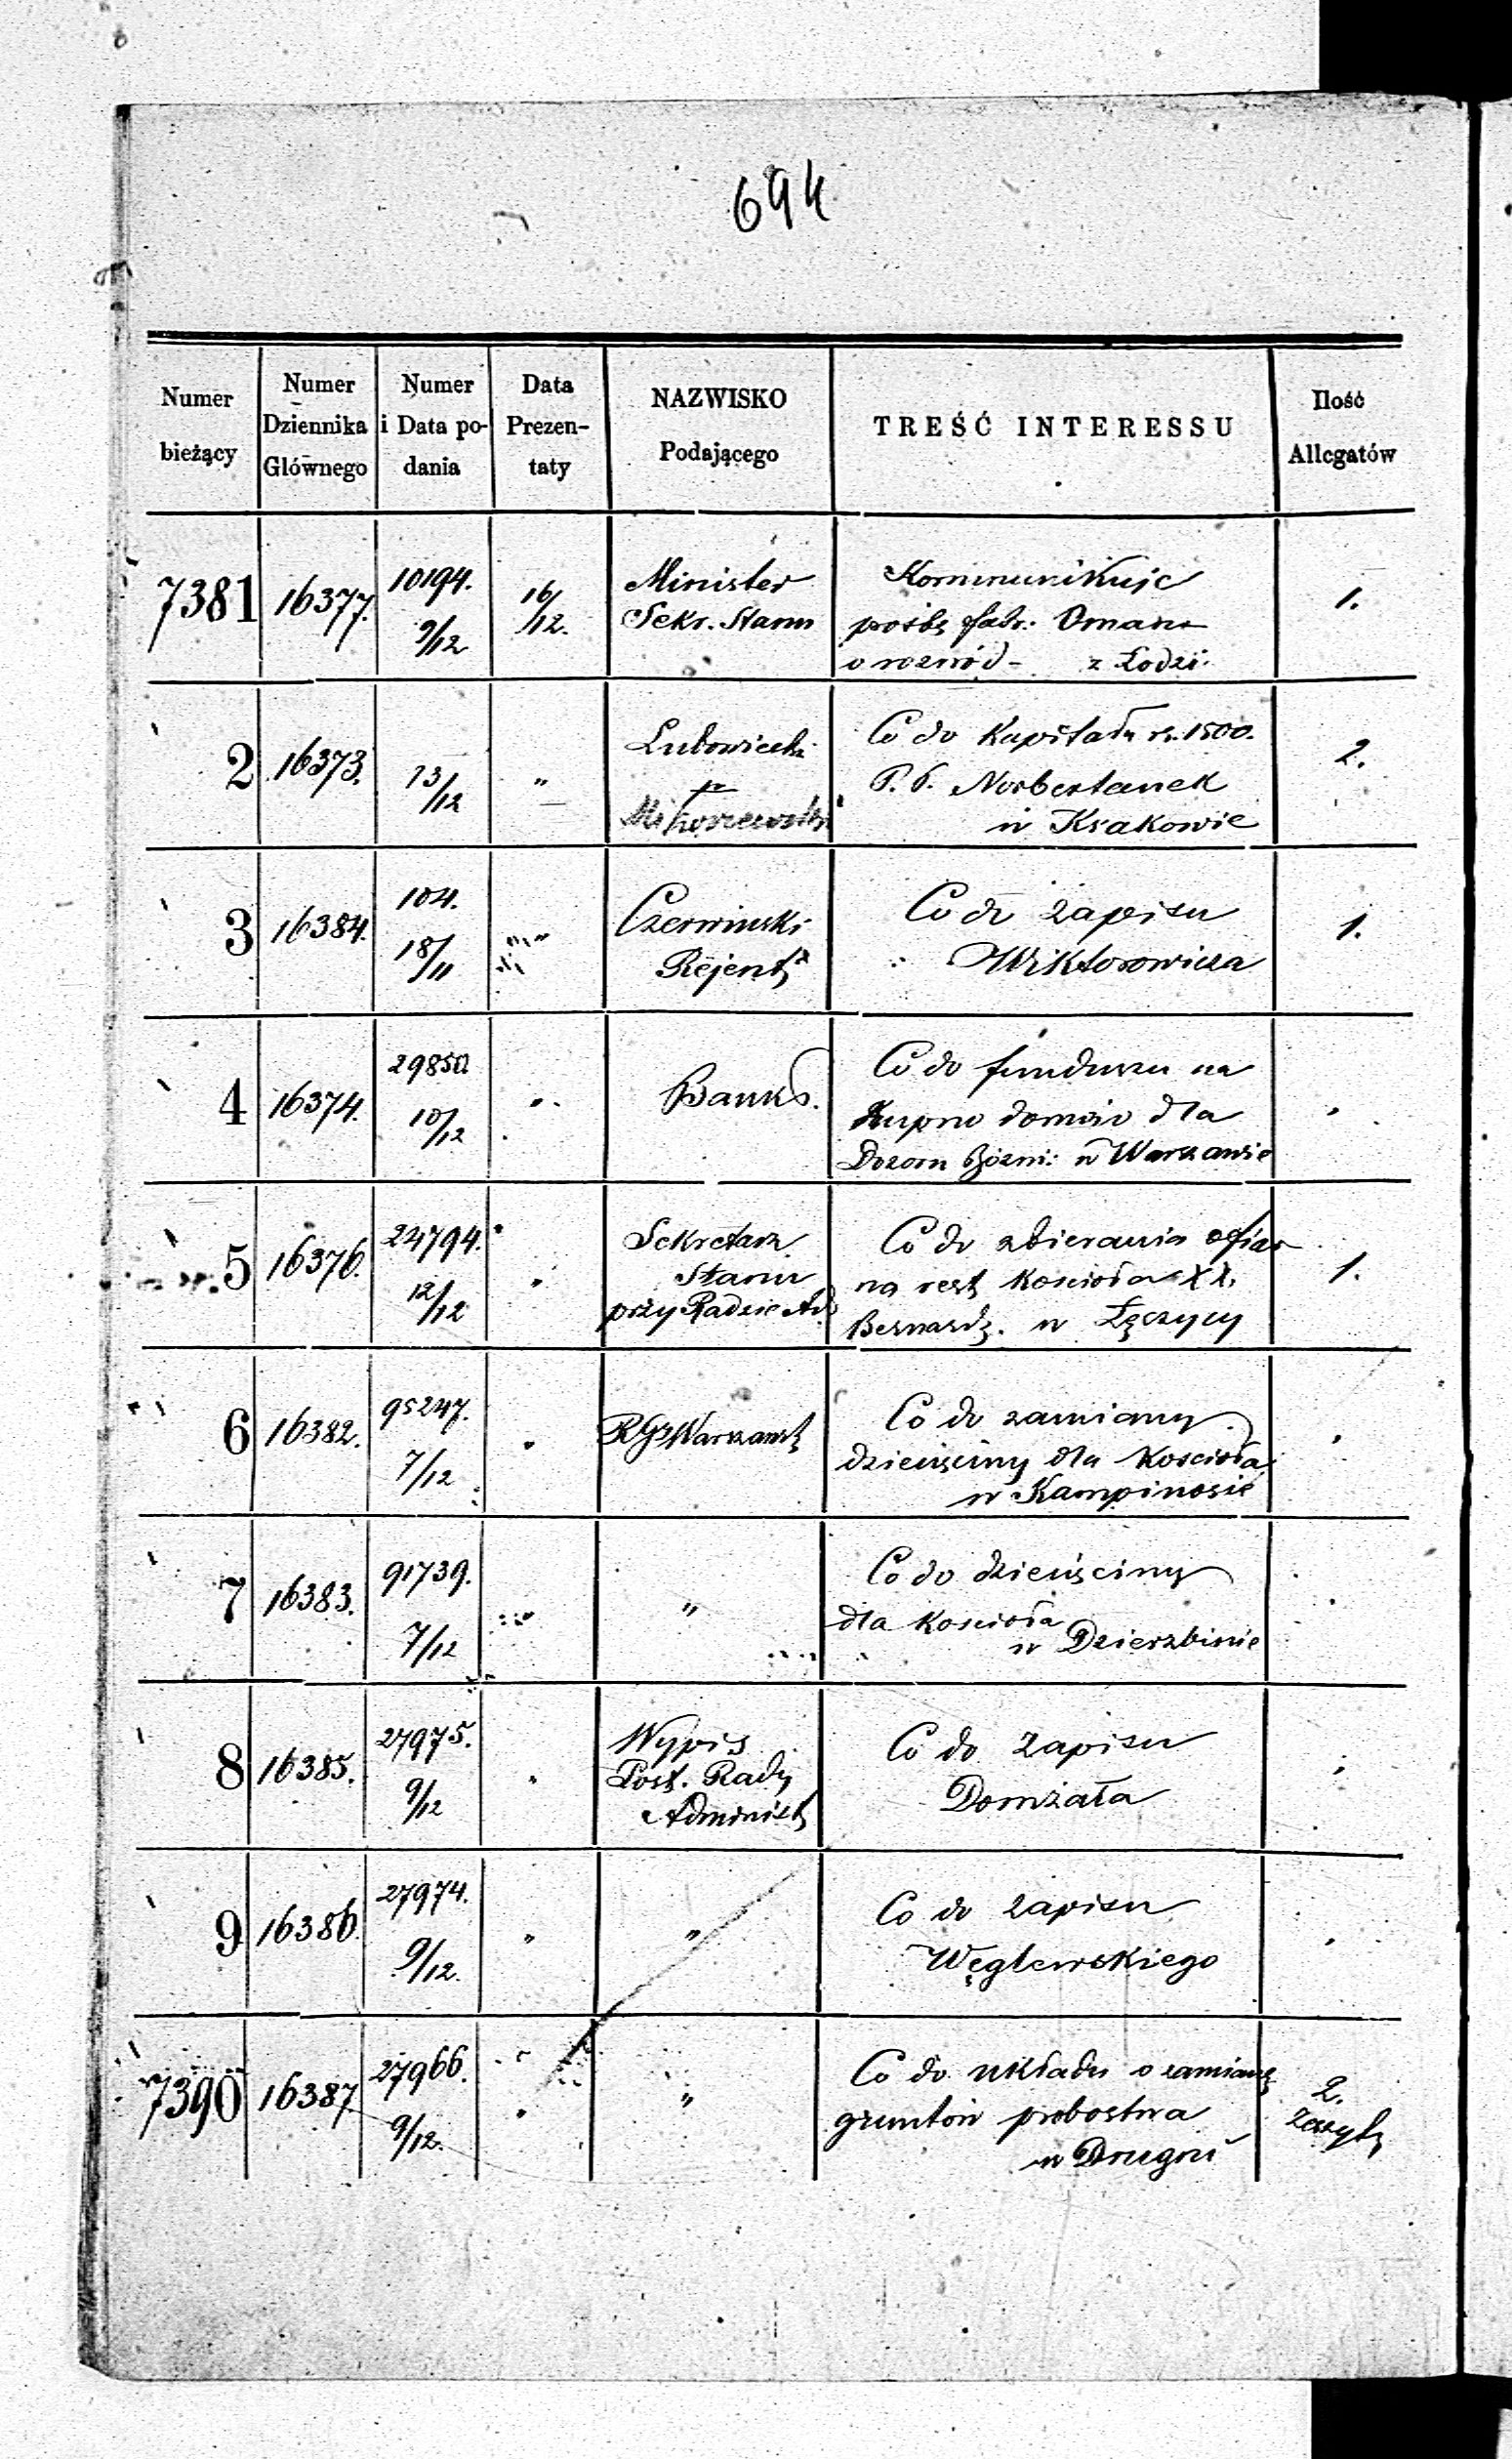 694
Numer bieżący | Numer Dziennika Głównego | Numer i Data podania | Data Prezentaty | NAZWISKO Podającego | TREŚĆ INTERESSU | Ilość Allegatów
7381 16377. 10194. 9/12 16/12. Minister Sekr. Stanu
Kommunikuje
prośbę fabr. Oman
o rozwód - z Łodzi. 1.
2 16373. 13/12 " Lubowiecki
Co do Kapitału rs. 1500.
P. P. Norbertanek
w Krakowie 2.
3 16384. 104. 18/11 " Czerwiński Rejent
Co do zapisu
Wiktorowicza 1.
4 16374. 29850 10/12 " Bank
Co do funduszu na
Kupno domów dla
Dozoru Bożni: w Warszawie "
5 16376. 24794. 12/12 " Sekretarz Stanu przy Radzie Ad.
Co do zbierania ofiar
na rest Kościoła XX.
Bernardz. w Łęczycy 1.
6 16382. 95247. 7/12 " RGWarszaws
Co do zamiany
dziesięciny dla Kościoła
w Kampinosie "
7 16383. 91739. 7/12 " "
Co do dziesięciny
dla Kościoła
w Dzierzbinie "
8 16385. 27975. 9/12 " Wypis Post. Rady Administ
Co do zapisu
Domżała "
9 16386. 27974. 9/12. " "
Co do zapisu
Węglewskiego "
7390 16387 27966. 9/12. " "
Co do układu o zamianę
gruntów probostwa
w Drugni 2. Zeszyty